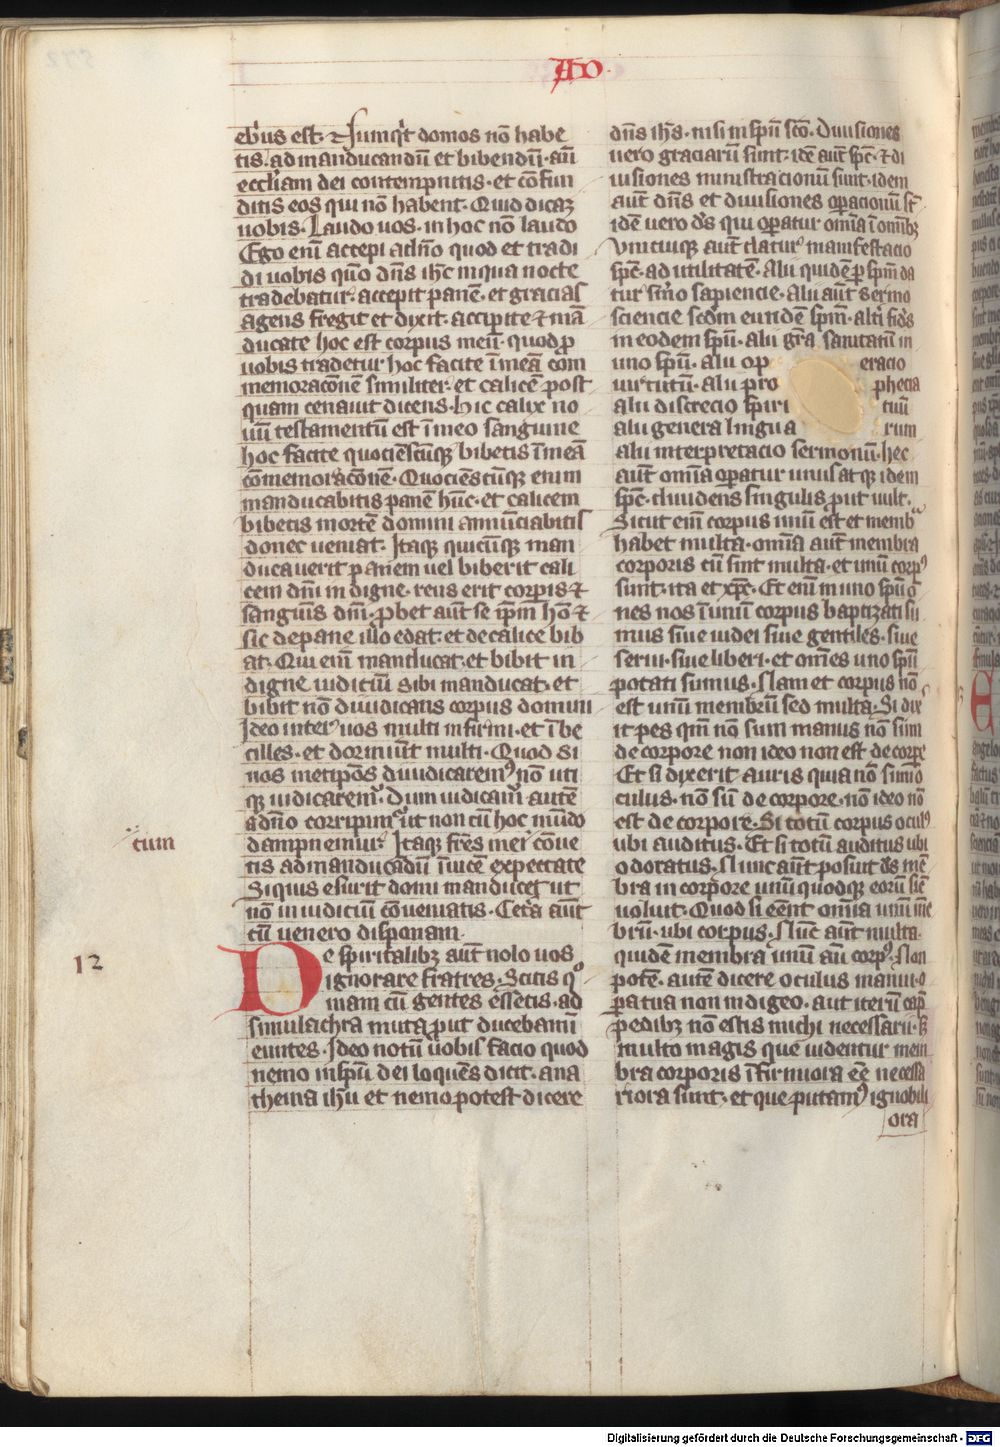 AD
eb'us est. ⁊ Numq̇t domos nō habe
tis. ad manducandū et bibendū. aūt
eccl'iam dei contempnitis. et cōfun
ditis eos qui nō habent. Quid dicaꝫ
uobis. Laudo uos. in hoc nō laudo
Ego enī accepi a dn̄o quod et tradi
di uobis qūo dn̄s ih̄c in qua nocte
tradebatur. accepit panē. et gracias
agens fregit et dixit. accipite ⁊ mā
ducate hoc est corpus meū. quod ꝓ
uobis tradetur hoc facite ī meā com
memoracōnē similiter. et calicē post
quam cenauit dicens. hic calix no
uū testamentū est ī meo sanguine
hoc facite quociēscūqꝫ bibetis ī meā
cōmemoracōnē. Quociēscūqꝫ enim
manducabitis panē hūc. et calicem
bibetis mortē domini annūciabitis
donec ueniat. Itaqꝫ quicūqꝫ man
ducauerit panem uel biberit cali
cem dn̄i indigne. reus erit corpis ⁊
sanguīs dn̄i. ꝓbet aūt se ip̄m hō ⁊
sic de pane illo edat. et de calice bib
at. Qui enī manducat. et bibit in
digne iudiciū sibi manducat. et
bibit nō diiudicans corpus domini
Ideo inter uos multi infirmi. et ībe
cilles. et dormiūt multi. Quod si
nos metipōs diiudicaremꝰ nō uti
qꝫ iudicaremꝰ. Dum iudicamꝰ autē
a dn̄o corripimꝰ ut non cū hoc mūdo
tum
dampnemur. Itaqꝫ fr̄es mei cōue
tis ad manducādū īuicē expectate
Si quis esurit domi manducet ut
nō in iudiciū cōueniatis. Cetā aūt
cū uenero disponam.
12
De spiritalibꝫ aūt nolo uos
ignorare fratres. Scitis qͦ
niam cū gentes essetis. ad
simulachra muta ꝓut ducebamī
euntes. Ideo notū uobis facio quod
nemo in sp̄u dei loquēs dicit. ana
thema ih̄u et nemo potest dicere
dn̄s ih̄s. nisi in sp̄u sc̄o. Diuisiones
uero graciarū sunt. idē aūt sp̄c. ⁊ di
uisiones ministracionū sunt. idem
aūt dn̄s et diuisiones oꝑacionū st̄
idē uero d̄s qui oꝑatur omīa ī omībꝫ
Vnicuiqꝫ aūt datur manifestacio
sp̄c. ad utilitatē. Alii quidē ꝑ sp̄m da
tur s̄mo sapiencie. Alii aūt sermo
sciencie scd̄m eundē sp̄m. alt'i fid's
in eodem sp̄u. alii gr̄a sanitatū in
uno sp̄u. alii op eracio
uirtutū. alii pro phecia
alii discrecio spiri tuū
alii genera lingua rum
alii interpretacio sermonū. hec
aūt omīa oꝑatur unus atqꝫ idem
sp̄c. diuidens singulis ꝓut uult.
Sicut enī corpus unū est et memb̄
habet multa. omīa aūt membra
corporis cū sint multa. et unū corpꝰ
sunt. ita et xp̄c. Et enī in uno sp̄u o
nes nos ī unū corpus baptizati su
mus siue iudei siue gentiles. siue
serui. siue liberi. et om̄es uno sp̄u
potati sumus. Nam et corpus nō
est unū membrū sed multa. Si dix
it pes qm̄ nō sum manus nō sum
de corpore non ideo non est de corpe
Et si dixerit auris quia nō sum o
culus. nō sū de corpore. nō ideo nō
est de corpore. Si totū corpus oculꝰ
ubi auditus. Et si totū auditus ubi
odoratus. Nunc aūt posuit d̄s mē
bra in corpore unū quodqꝫ eorū sic̄
uoluit. Quod si eēnt omīa unū mē
brū. ubi corpus. Nūc aūt multa
quidē membra unū aū corpꝰ. Non
potē. autē dicere oculus manui. o
ꝑa tua non indigeo. aut iterū cap̄
pedibꝫ nō estis michi necessarii. s̄
multo magis que uidentur mem
bra corporis īfirmiora eē necessa
riora sunt. et que putamꝰ ignobili
ora
Digitalisierung gefördert durch die Deutsche Forschungsgemeinschaft - DFG